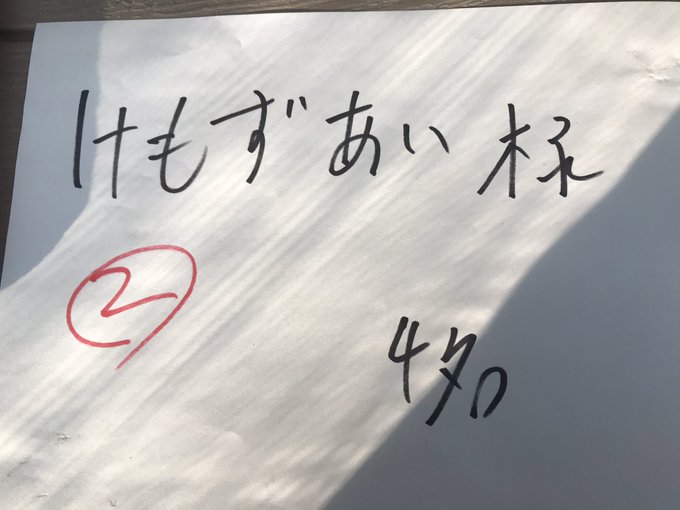 けもずあい 様
②
4名